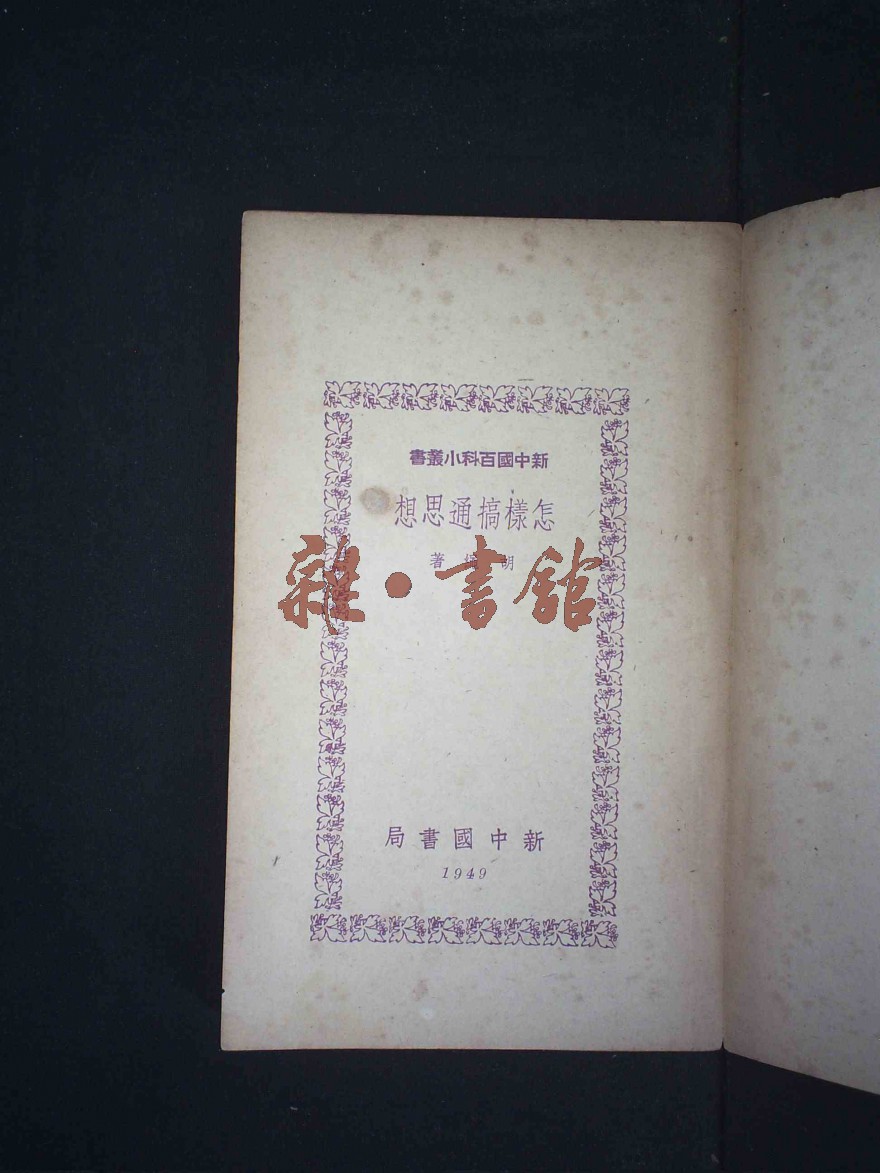 新中國百科小叢書
怎樣搞通思想
著
雜·書館
新中國書局
1949